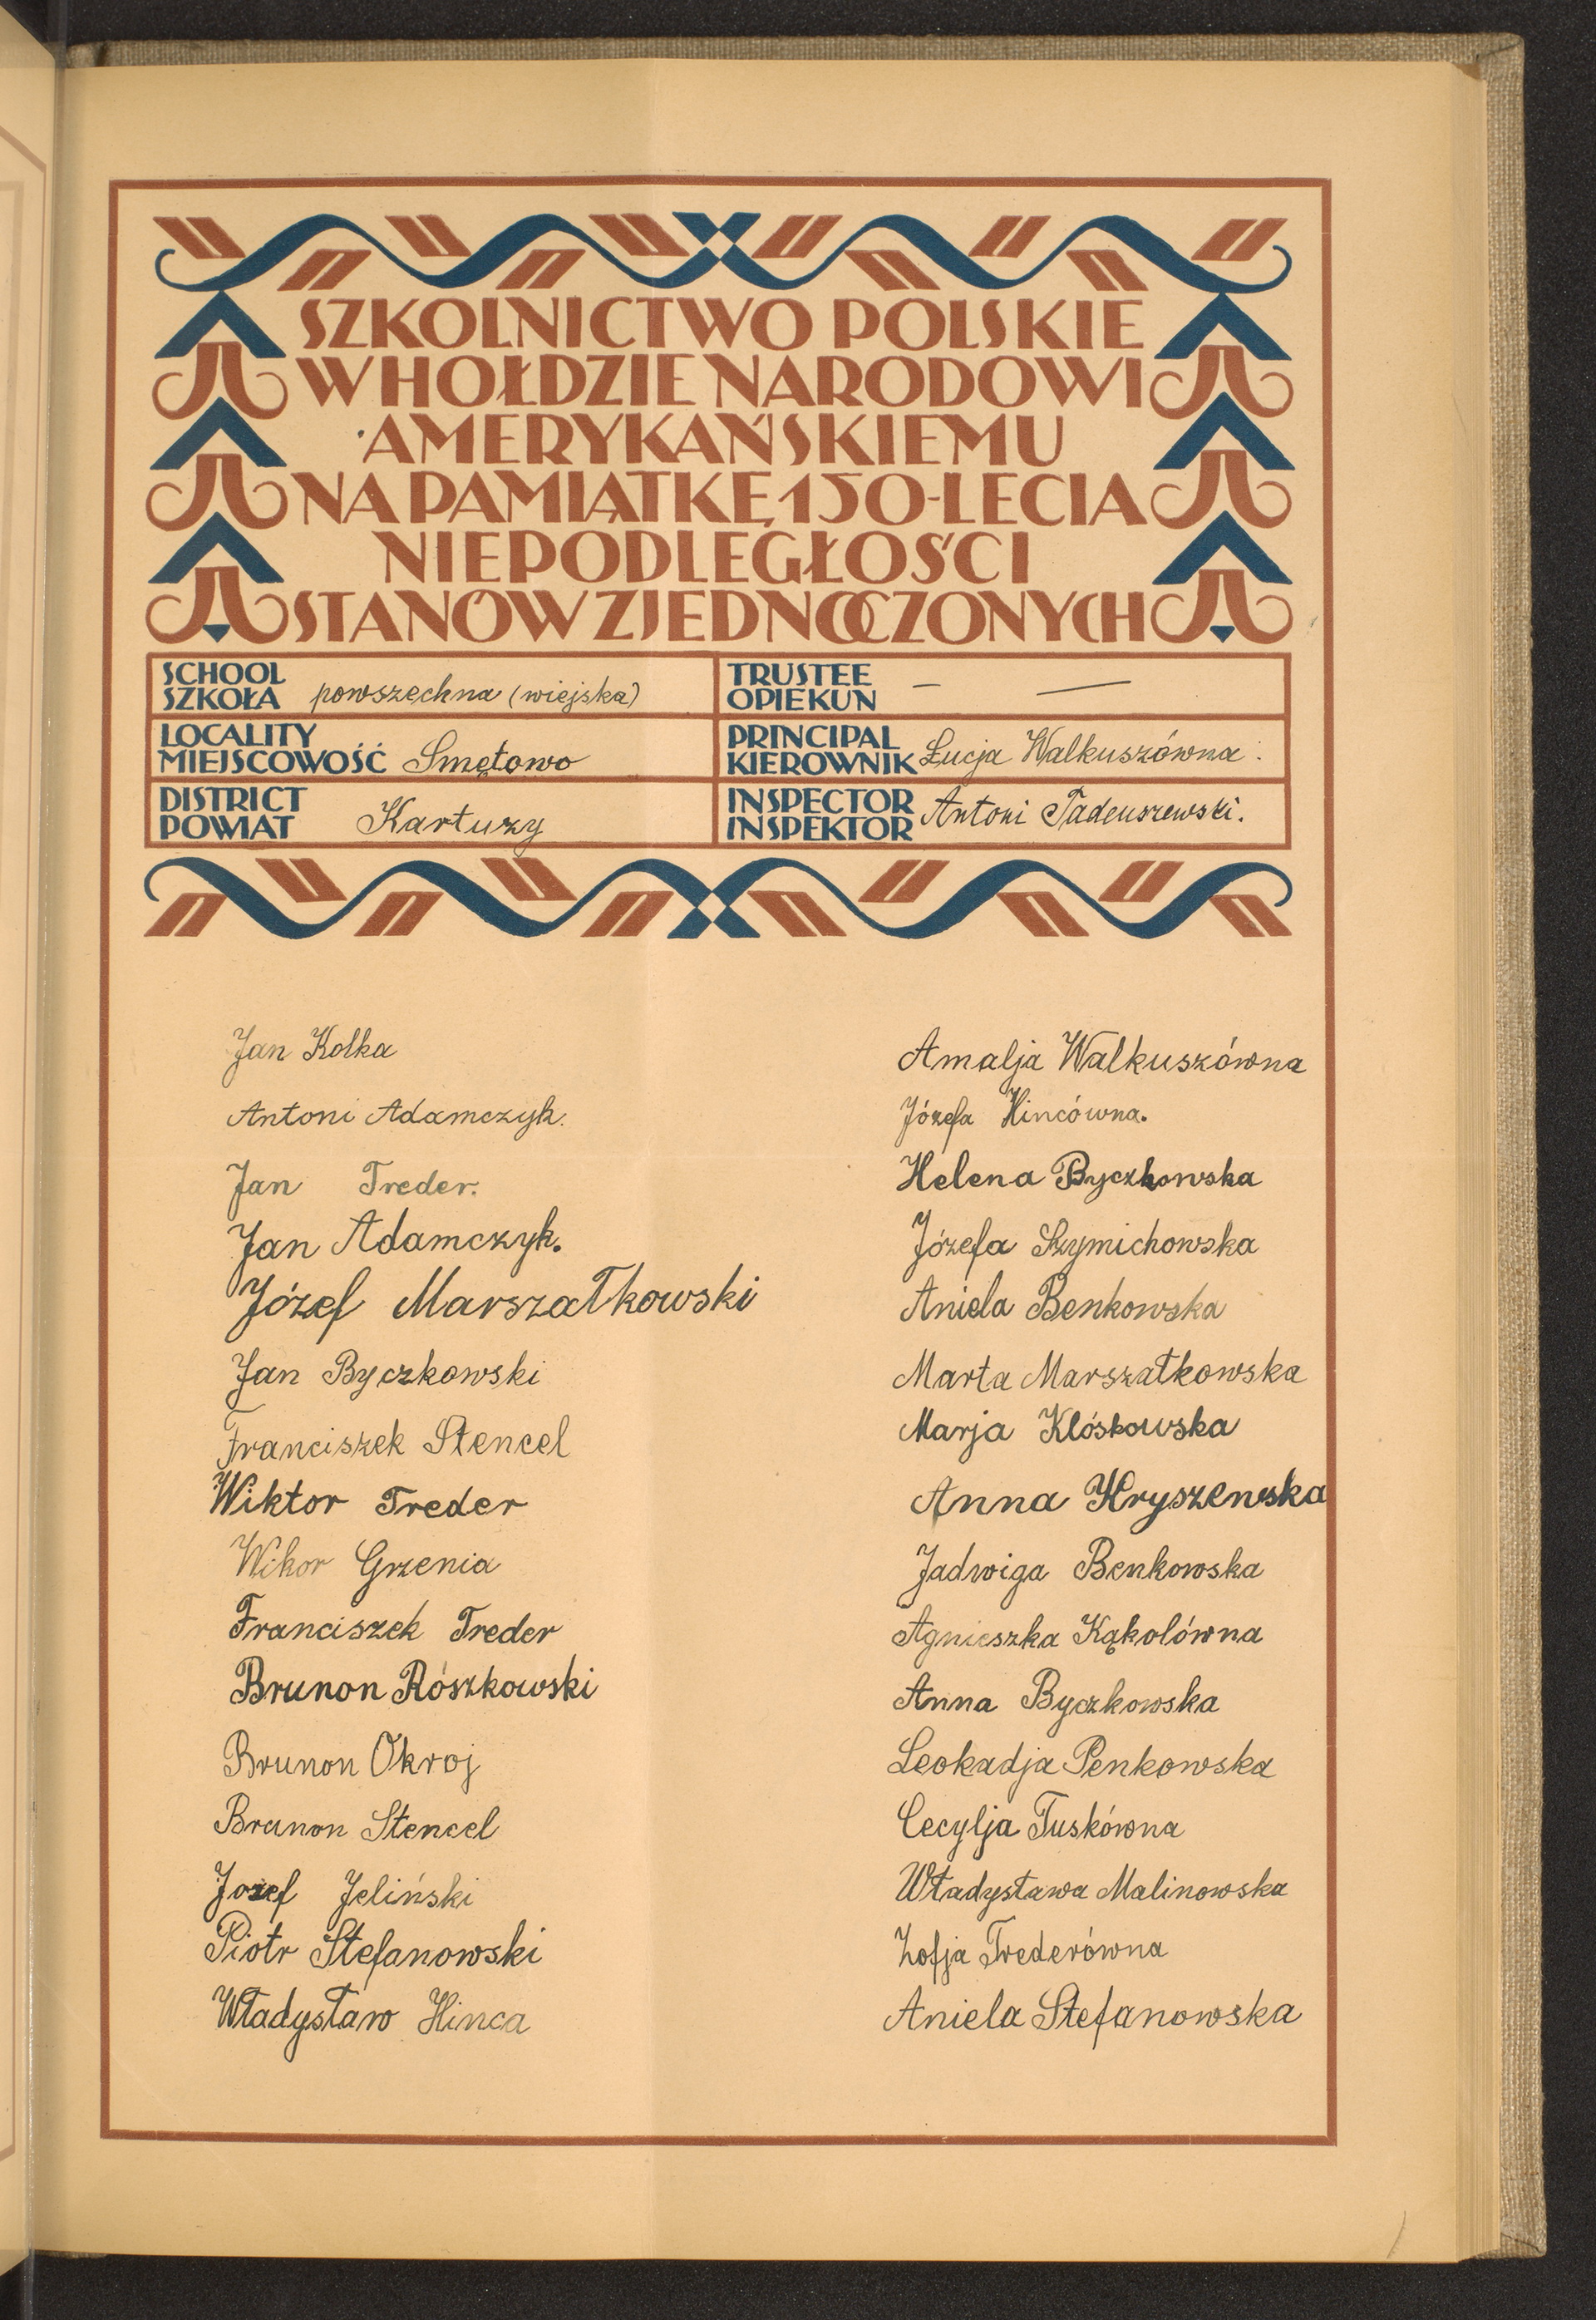 SZKOLNICTWO POLSKIE
W HOŁDZIE NARODOWI
AMERYKAŃSKIEMU
NA PAMIĄTKĘ 150-LECIA
NIEPODLEGŁOŚCI
STANÓW ZJEDNOCZONYCH
SCHOOL
SZKOŁA powszechna (wiejska)
TRUSTEE
OPIEKUN — —
LOCALITY
MIEJSCOWOŚĆ Smętowo
PRINCIPAL
KIEROWNIK Łucja Walkuszówna
DISTRICT
POWIAT Kartuzy
INSPECTOR
INSPEKTOR Antoni Tadeuszewski.
Jan Kolka
Antoni Adamczyk.
Jan Treder.
Jan Adamczyk.
Józef Marszałkowski
Jan Byczkowski
Franciszek Stencel
Wiktor Treder
Wikor Grzenia
Franciszek Treder
Brunon Rószkowski
Brunon Okroj
Brunon Stencel
Jozef Jeliński
Piotr Stefanowski
Władysław Hinca
Amalja Walkuszówna
Józefa Hincówna.
Helena Byczkowska
Józefa Szymichowska
Aniela Benkowska
Marta Marszałkowska
Marja Klóskowska
Anna Hryszewska
Jadwiga Benkowska
Agnieszka Kąkolówna
Anna Byczkowska
Leokadja Penkowska
Cecylja Tuskówna
Władysława Malinowska
Zofja Trederówna
Aniela Stefanowska